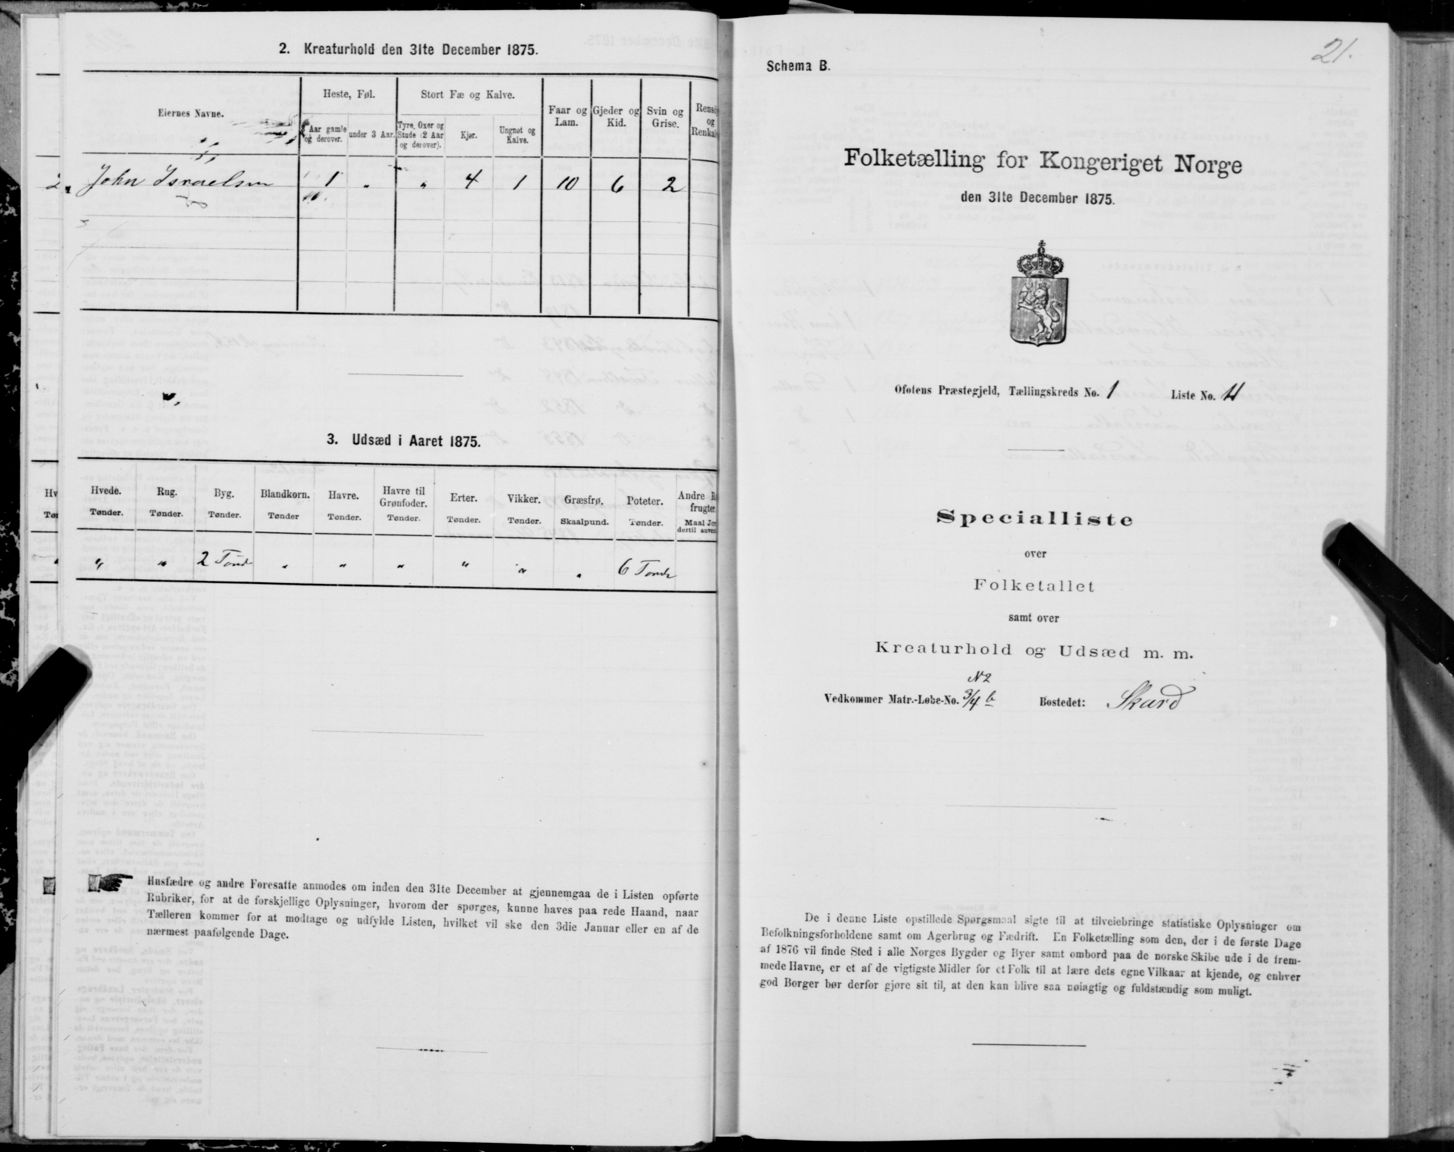 2. Kreaturhold den 31te December 1875.
Eiernes Navne.
Heste, Føl.
Stort Fæ og Kalve.
Faar og Lam.
Gjeder og Kid.
Svin og Grise.
Aar gamle og derover.
under 3 Aar.
Tyre, Oxer og Stude (2 Aar og derover).
Kjør.
Ungnøt og Kalve.
John Israelsen 1 „ „ 4 1 10 6 2
3. Udsæd i Aaret 1875.
Hvede. Rug. Byg. Blandkorn. Havre. Havre til Grønfoder. Erter. Vikker. Græsfrø. Poteter.
Tønder. Tønder. Tønder. Tønder Tønder. Tønder. Tønder. Tønder. Skaalpund. Tønder.
„ „ 2 Tønd „ „ „ „ „ „ 6 Tønde
Husfædre og andre Foresatte anmodes om inden den 31te December at gjennemgaa de i Listen opførte
Rubriker, for at de forskjellige Oplysninger, hvorom der spørges, kunne haves paa rede Haand, naar
Tælleren kommer for at modtage og udfylde Listen, hvilket vil ske den 3die Januar eller en af de
nærmest paafølgende Dage.
21.
Schema B.
Folketælling for Kongeriget Norge
den 31te December 1875.
Ofotens Præstegjeld, Tællingskreds No. 1 Liste No. 4
Specialliste
over
Folketallet
samt over
Kreaturhold og Udsæd m. m.
N2
Vedkommer Matr.-Løbe-No. 3/4 b Bostedet: Skard
De i denne Liste opstillede Spørgsmaal sigte til at tilveiebringe statistiske Oplysninger om
Befolkningsforholdene samt om Agerbrug og Fædrift. En Folketælling som den, der i de første Dage
af 1876 vil finde Sted i alle Norges Bygder og Byer samt ombord paa de norske Skibe ude i de frem-
mede Havne, er et af de vigtigste Midler for et Folk til at lære dets egne Vilkaar at kjende, og enhver
god Borger bør derfor gjøre sit til, at den kan blive saa nøiagtig og fuldstændig som muligt.